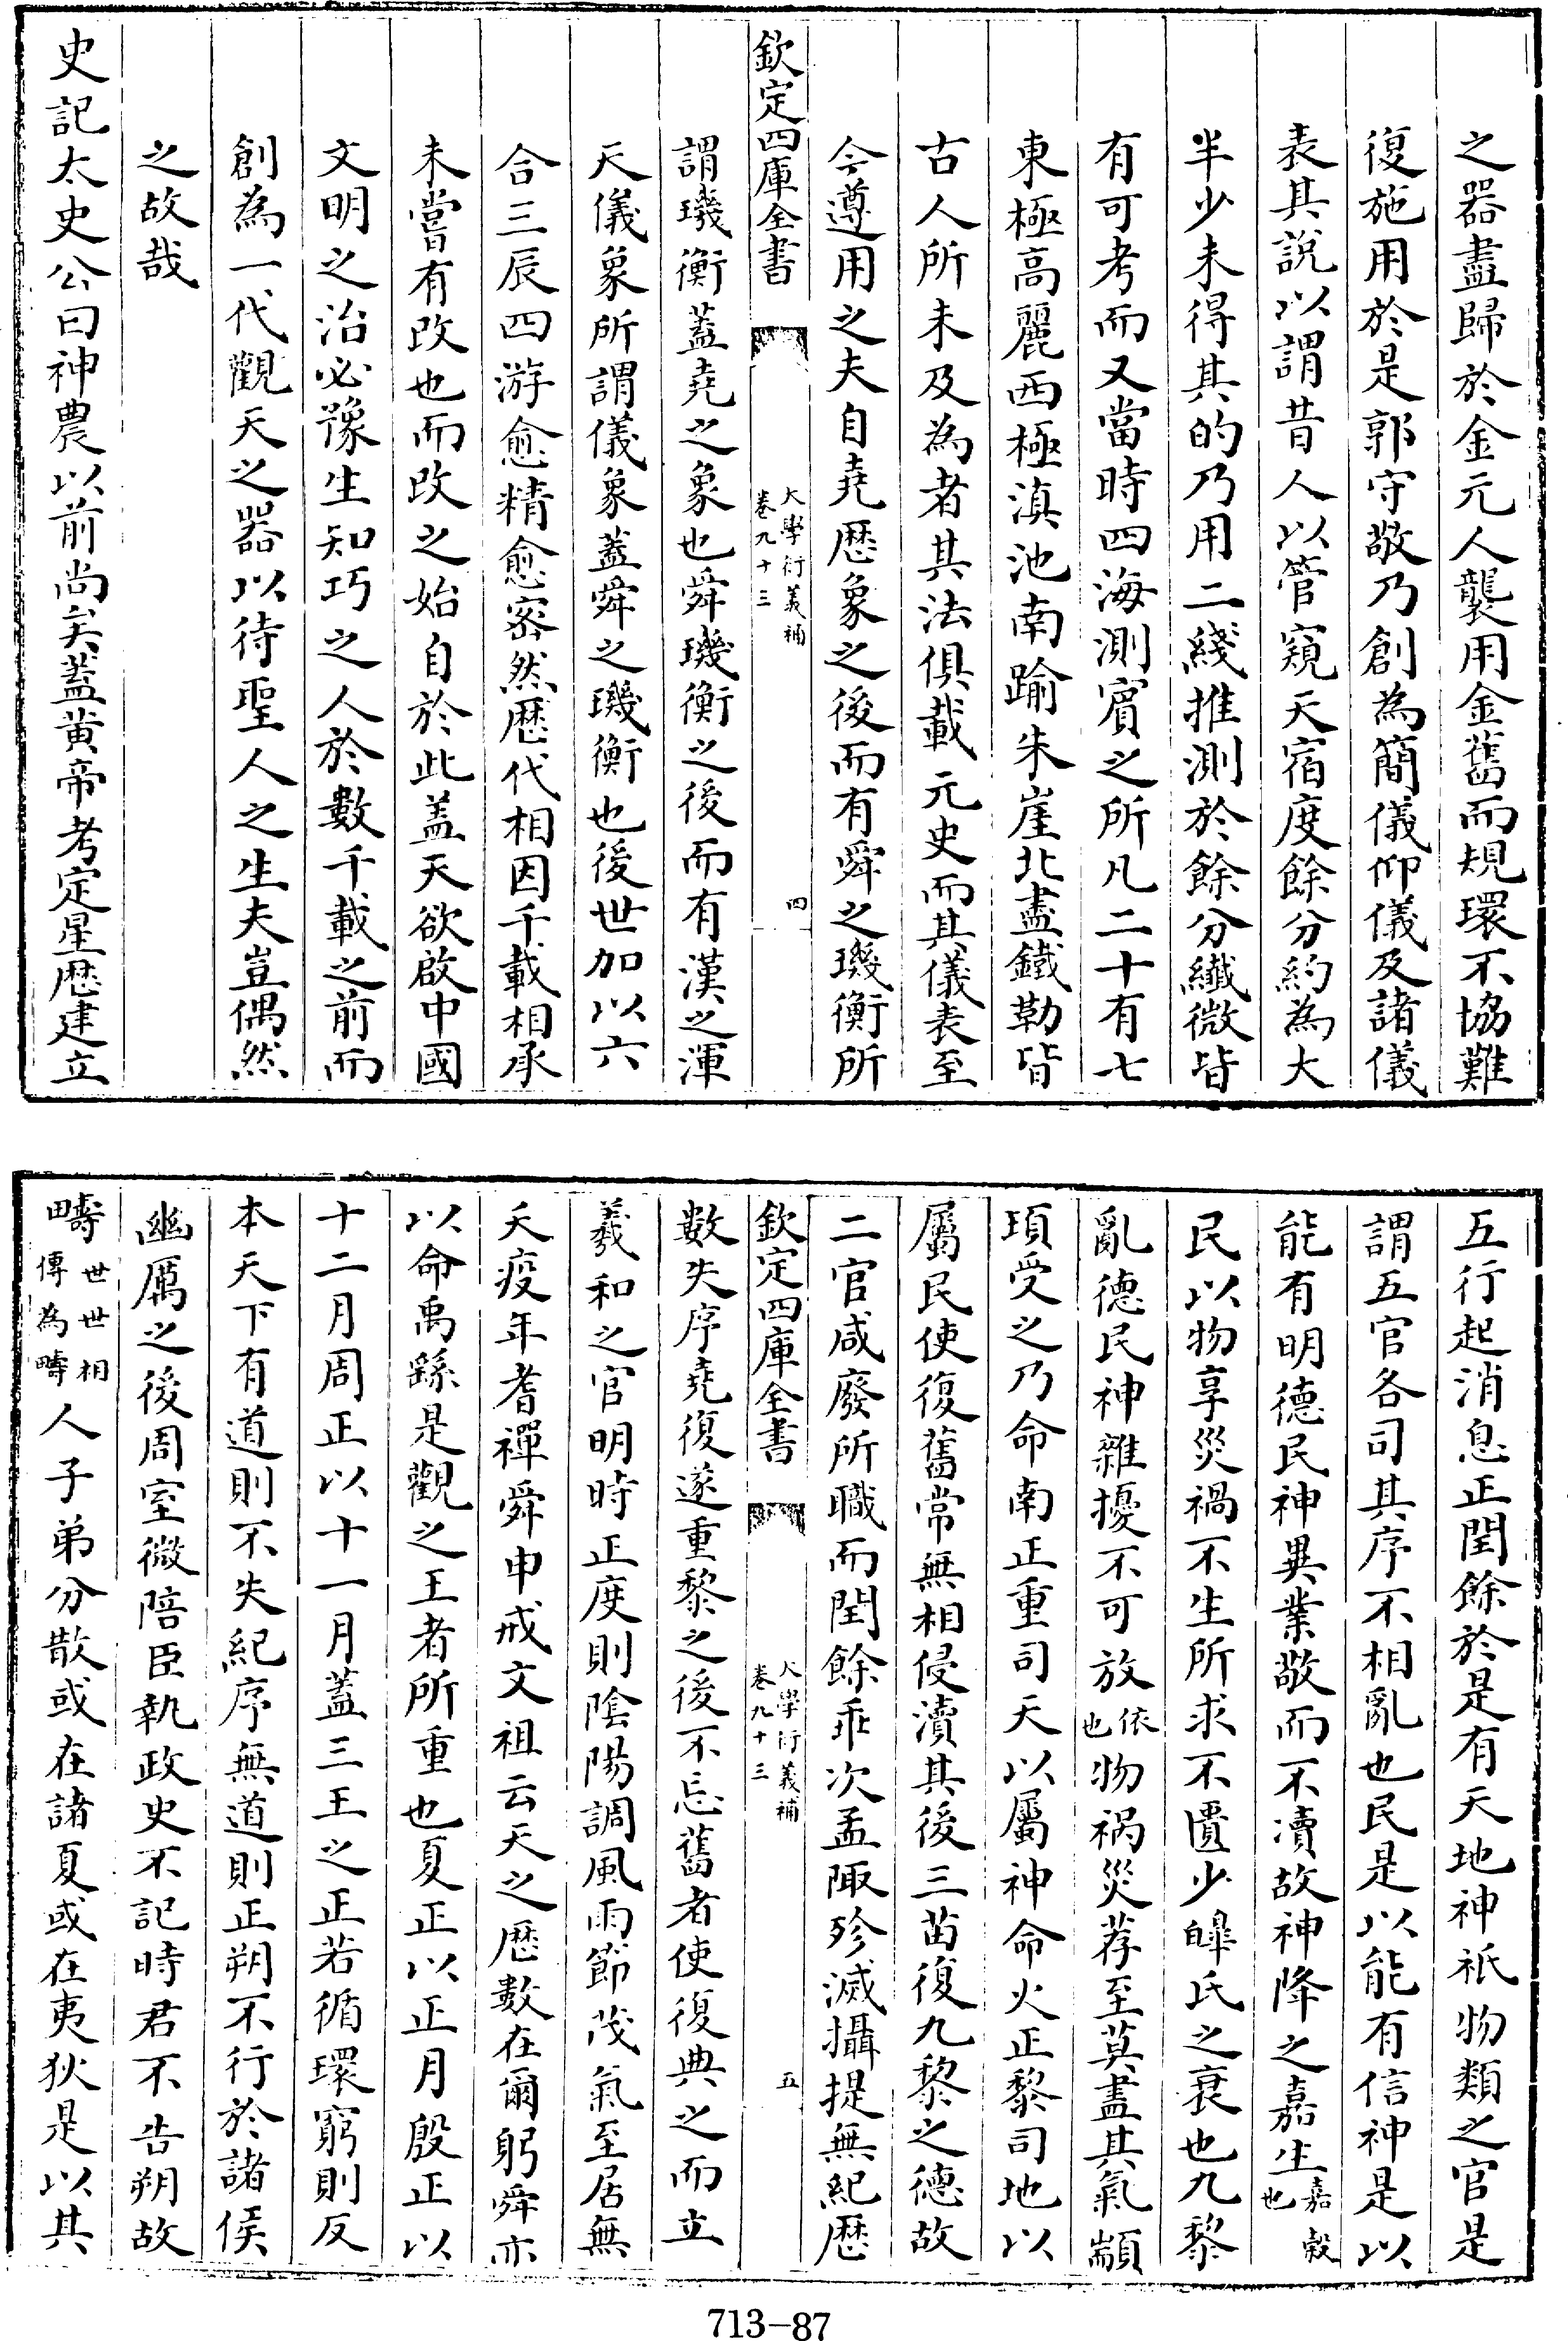 之器盡歸於金元人襲用金舊而規環不協難
復施用於是郭守敬乃創為簡儀仰儀及諸儀
表其說以謂昔人以管窺天宿度餘分約為大
半少未得其的乃用二綫推測於餘分纎微皆
有可考而又當時四海測賓之所凡二十有七
東極高麗西極滇池南踰朱崖北盡鐵勒皆
古人所未及為者其法俱載元史而其儀表至
今遵用之夫自堯歴象之後而有舜之璣衡所
欽定四庫全書
大學衍義補
卷九十三
四
謂璣衡蓋堯之象也舜璣衡之後而有漢之渾
天儀象所謂儀象蓋舜之璣衡也後世加以六
合三辰四游愈精愈宻然歴代相因千載相承
未嘗有改也而改之始自於此盖天欲啟中國
文明之治必豫生知巧之人於數千載之前而
創為一代觀天之器以待聖人之生夫豈偶然
之故哉
史記太史公曰神農以前尚矣蓋黄帝考定星歴建立
五行起消息正閏餘於是有天地神祇物類之官是
謂五官各司其序不相亂也民是以能有信神是以
能有明德民神異業敬而不瀆故神降之嘉生嘉穀也
民以物享災禍不生所求不匱少皥氏之衰也九黎
亂德民神雜擾不可放依也物禍災荐至莫盡其氣顓
頊受之乃命南正重司天以屬神命火正黎司地以
屬民使復舊常無相侵瀆其後三苗復九黎之德故
二官咸廢所職而閏餘乖次孟陬殄滅攝提無紀歴
欽定四庫全書
大學衍義補
卷九十三
五
數失序堯復遂重黎之後不忘舊者使復典之而立
羲和之官明時正度則陰陽調風雨節茂氣至居無
夭疫年耆禪舜申戒文祖云天之歴數在爾躬舜亦
以命禹繇是觀之王者所重也夏正以正月殷正以
十二月周正以十一月蓋三王之正若循環窮則反
本天下有道則不失紀序無道則正朔不行於諸侯
幽厲之後周室微陪臣執政史不記時君不告朔故
疇世世相傳為疇人子弟分散或在諸夏或在夷狄是以其
713-87